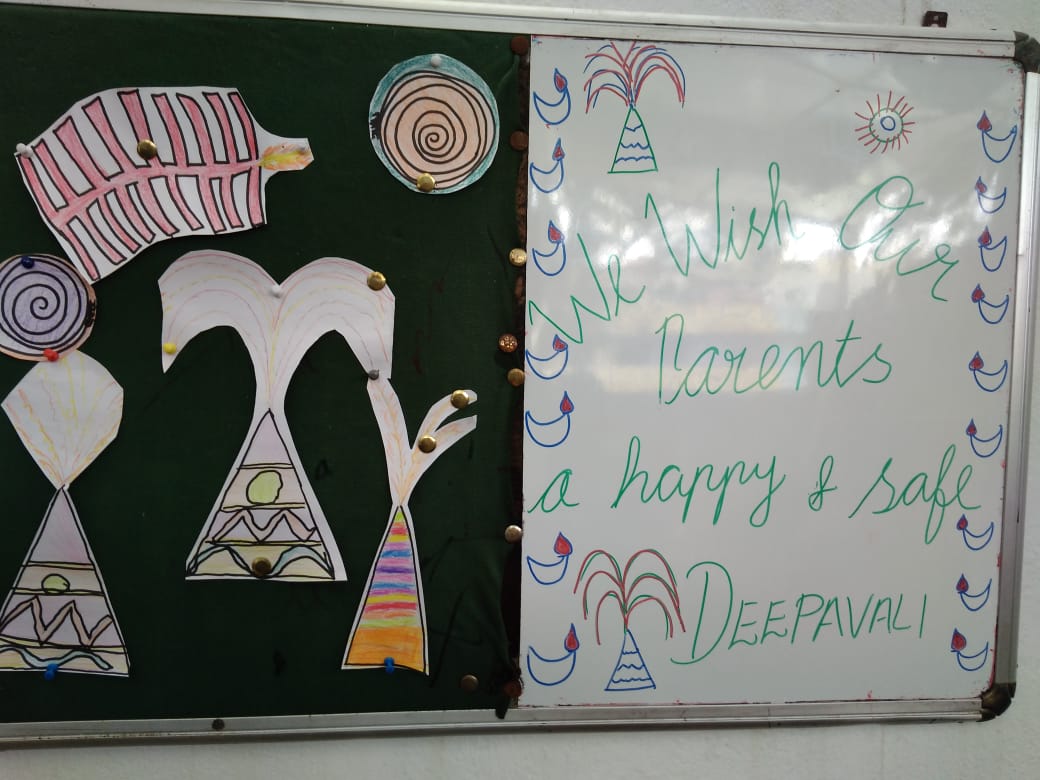 We Wish Our
Parents
a happy & safe
DEEPAVALI